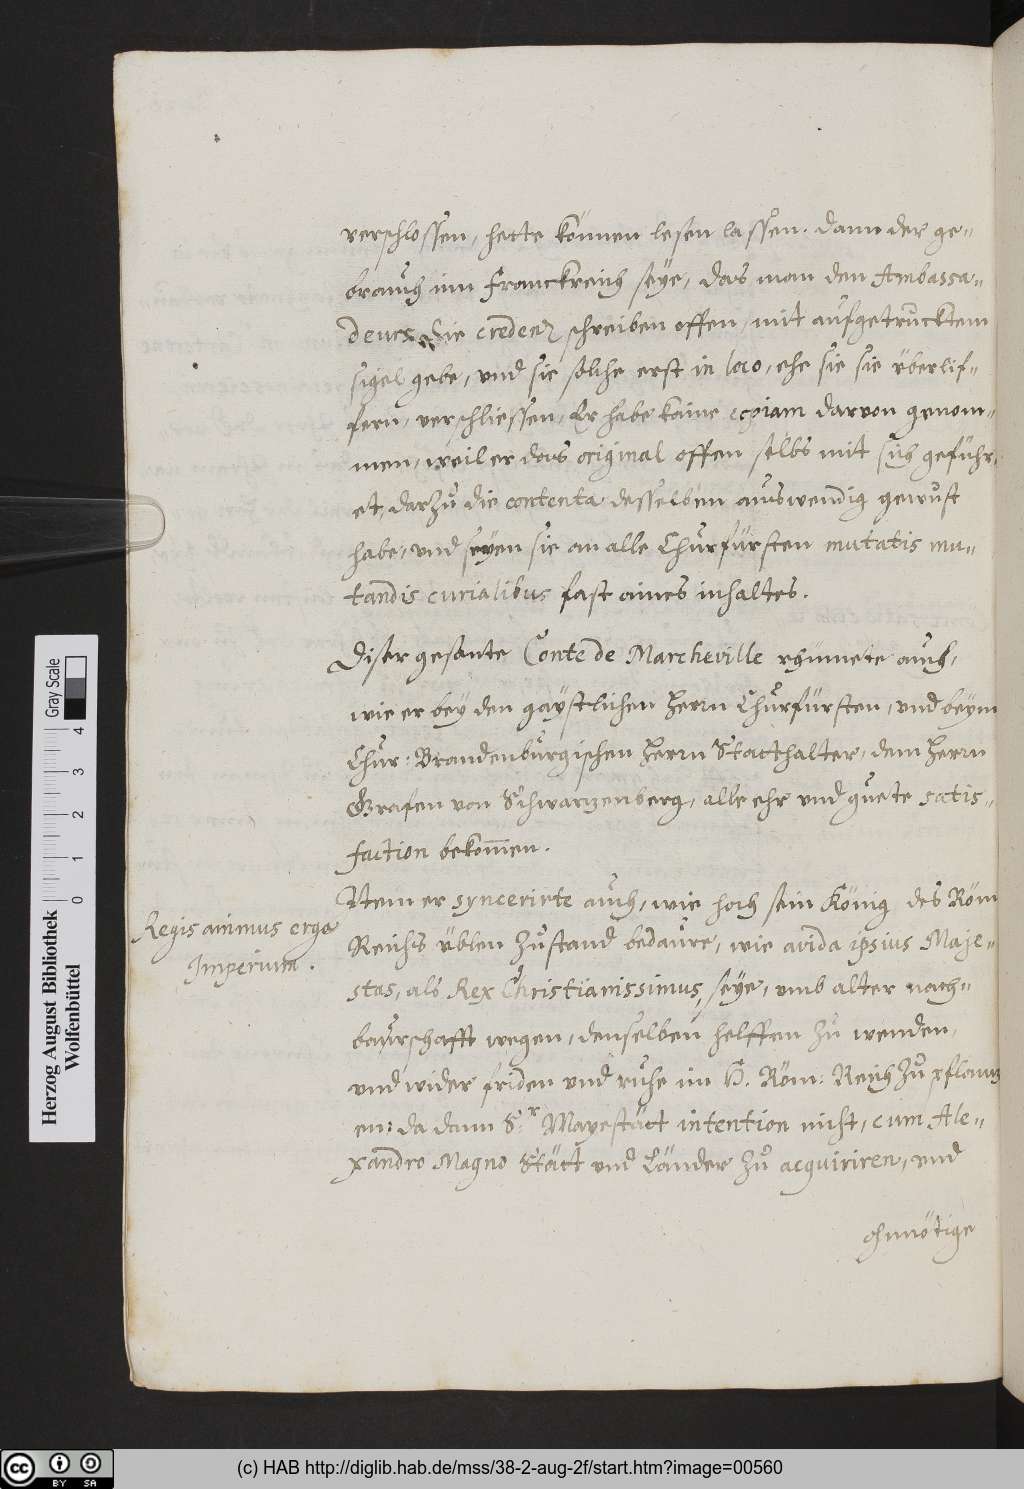 verschlossen, hette können lesen lassen. dann der ge-
brauch inn Franckreich seye, das man den Ambassa-
deurs, die credentz schreiben offen, mit aufgetrucktem
sigel gebe, und sie solche erst in loco, ehe sie sie überlif-
fern, verschliessen, Er habe kaine copiam darvon genom-
men, weil er das original offen selbs mit sich geführ-
et, darzů die contenta desselben auswendig gewust
habe, und seyen sie an alle Churfürsten mutatis mu-
tandis curialibus fast aines inhaltes.
Diser gesante Conte de Marcheville rhümete auch,
wie er bey den gaystlichen herrn Churfürsten, und beym
Chur: Brandenburgischen herrn Statthalter, dem herrn
Grafen von Schwartzenberg, alle ehr und guete satis-
faction bekommen.
Regis animus erga
Imperium.
Item er syncerirte auch, wie hoch sein König des Röm
Reichs üblen zůstand bedaure, wie avida ipsius Maje-
stas, als Rex Christianissimus, seye, umb alter nach-
baurschafft wegen, denselben helffen zů wenden,
und wider friden und ruhe im H. Röm: Reich zů pflantz
en: da dann S.r Mayestätt intention nicht, cum Ale-
xandro Magno Stätt und Länder zů acquiriren, und
ohnnötige
Herzog August Bibliothek
Wolfenbüttel
0 1 2 3 4
Gray Scale
cc BY SA
(c) HAB http://diglib.hab.de/mss/38-2-aug-2f/start.htm?image=00560